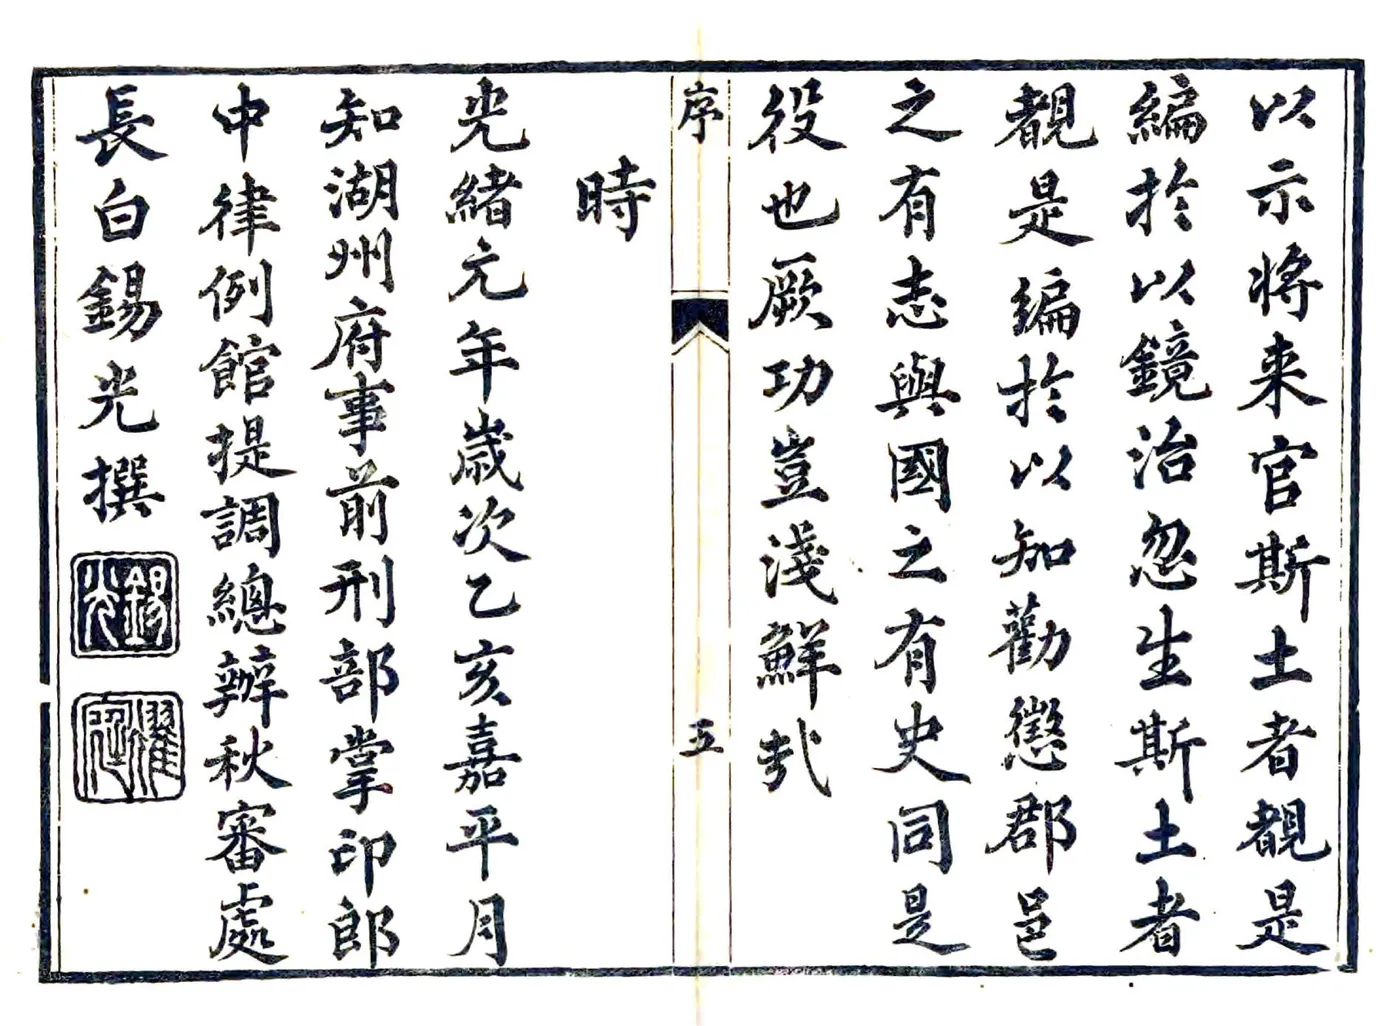 以示将来官斯土者覩是
編於以鏡治忽生斯土者
覩是編於以知勸懲郡邑
之有志與國之有史同是
役也厥功豈淺鮮哉
序
五
時
光緒元年歲次乙亥嘉平月
知湖州府事前刑部掌印郎
中律例館提調總辦秋審處
長白錫光撰
錫光